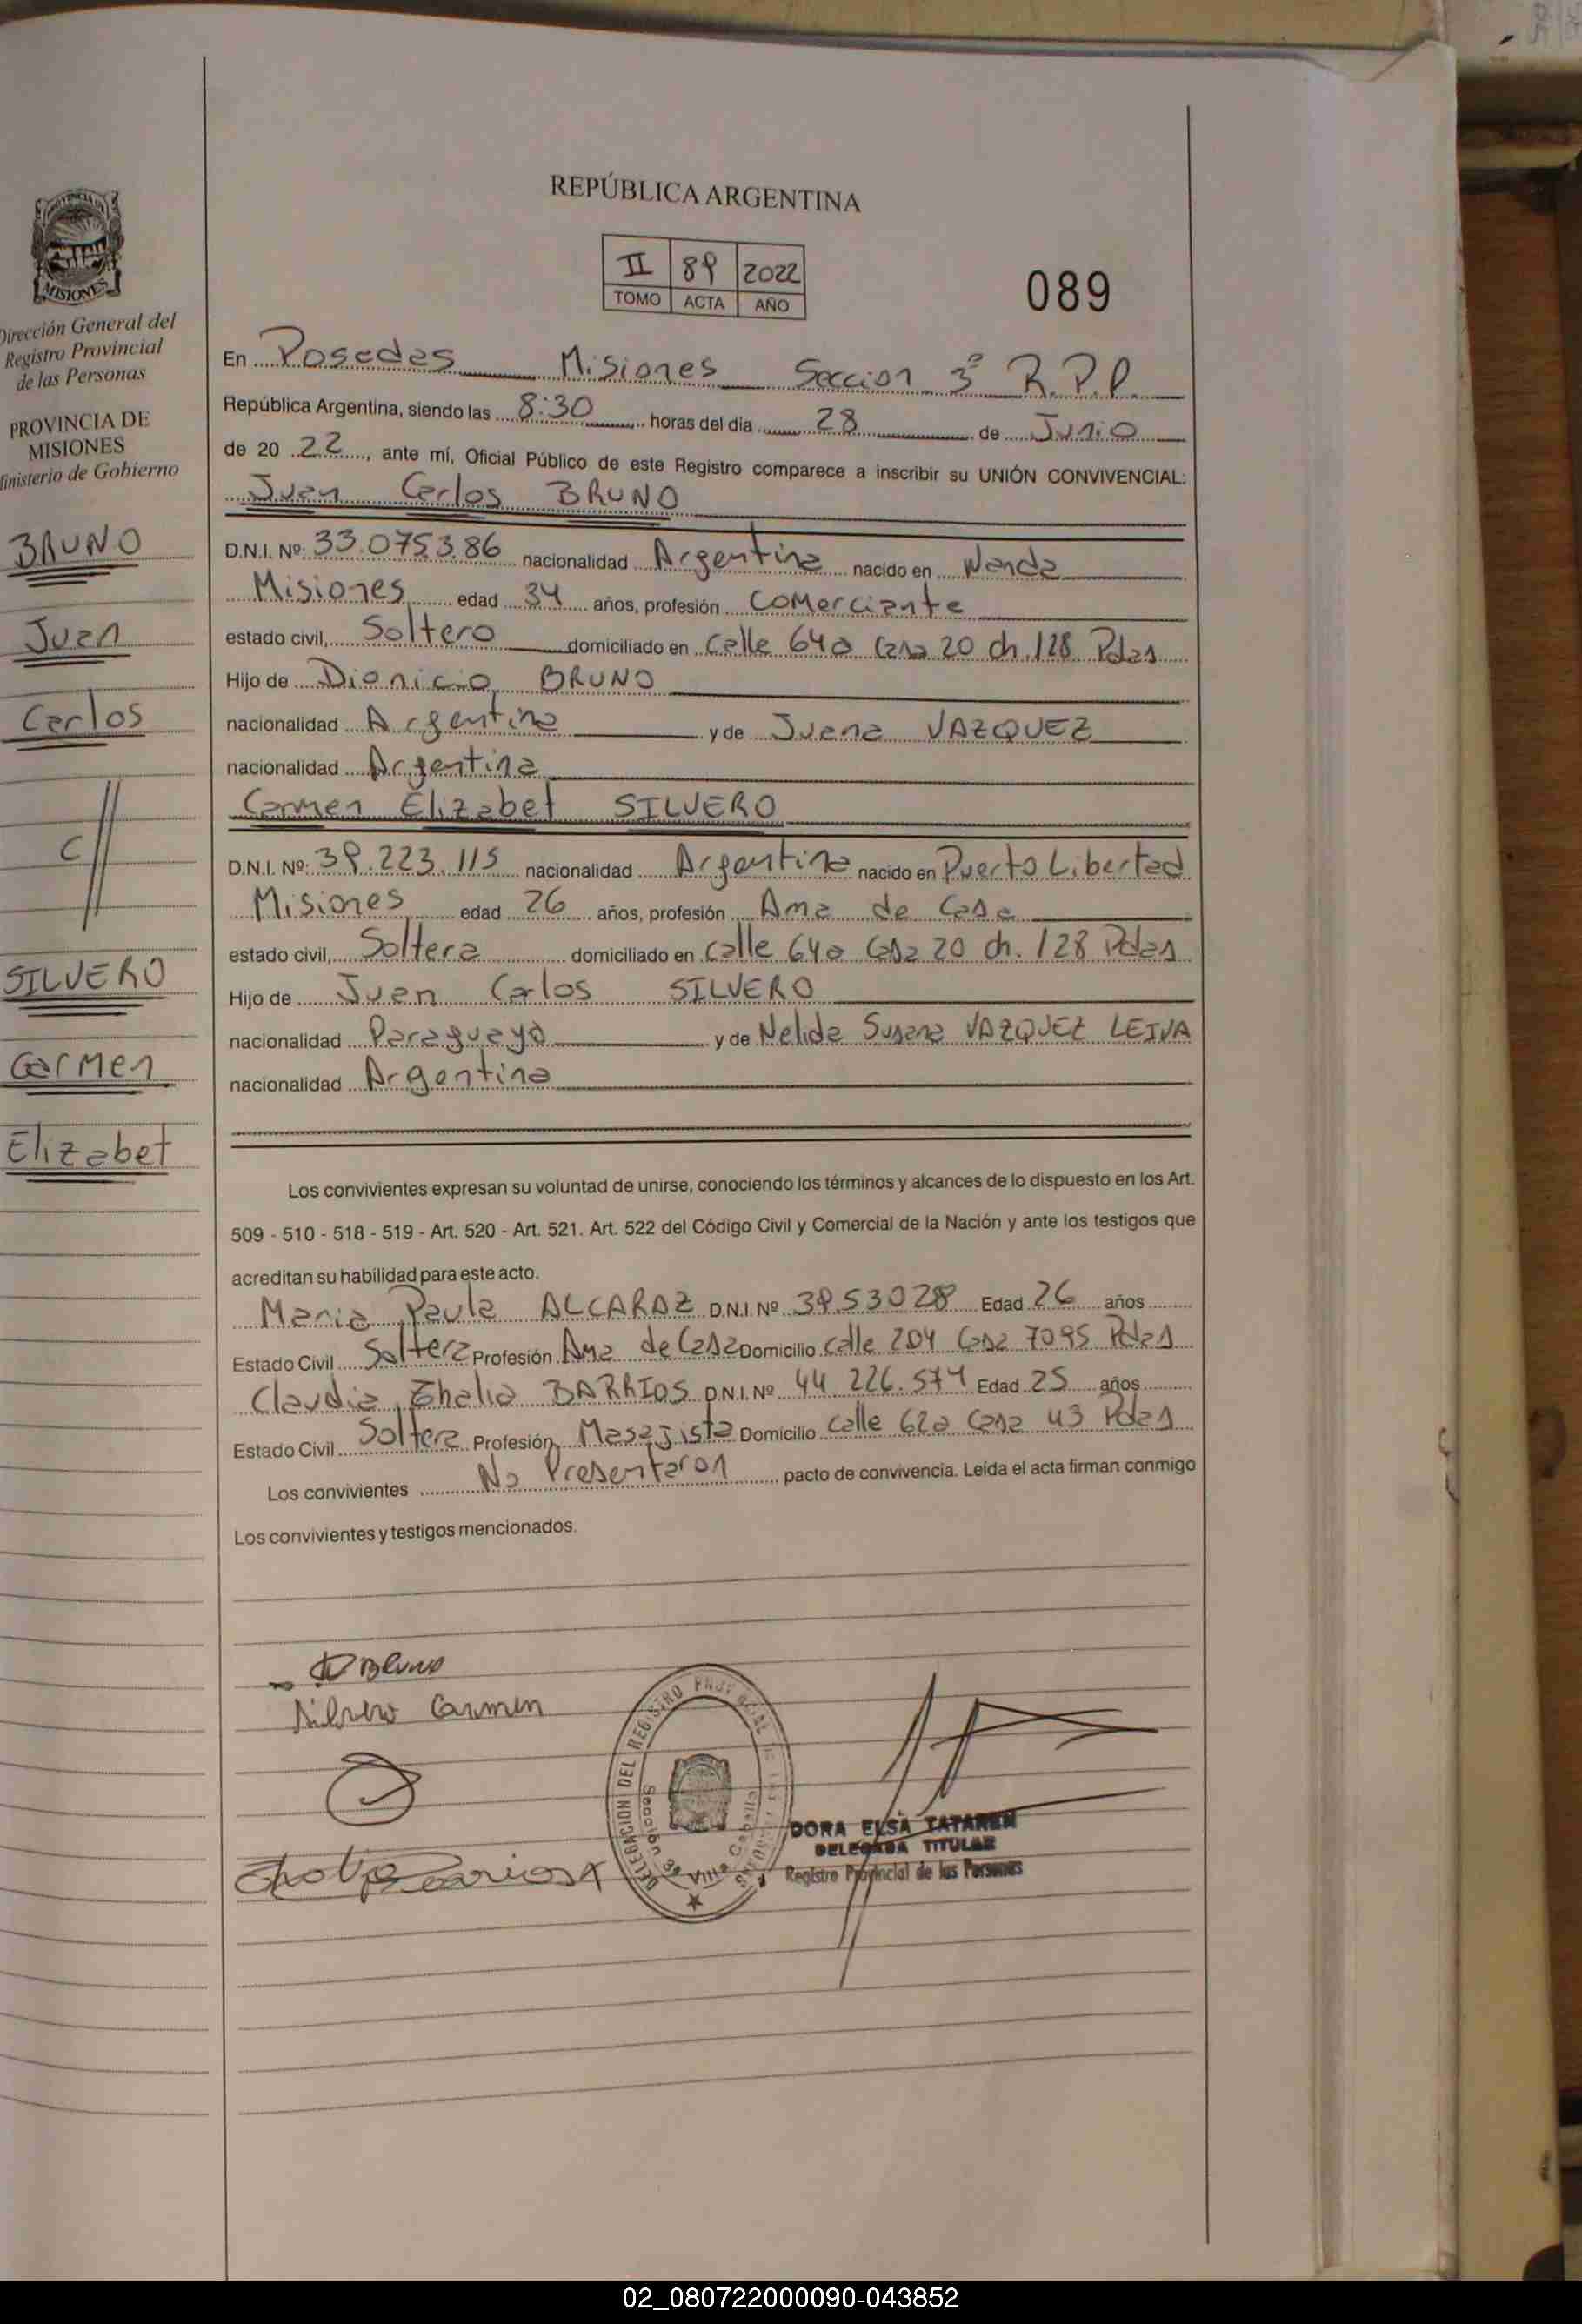 MISIONES
Dirección General del
Registro Provincial
de las Personas
PROVINCIA DE
MISIONES
Ministerio de Gobierno
BRUNO
Juan
Carlos
C//
SILVERO
Carmen
Elizabet
REPÚBLICA ARGENTINA
II 89 2022
TOMO ACTA AÑO
089
En Posadas Misiones Seccion 3ª R.P.P.
República Argentina, siendo las 8:30 horas del día 28 de Junio
de 20 22, ante mí, Oficial Público de este Registro comparece a inscribir su UNIÓN CONVIVENCIAL:
Juan Carlos BRUNO
D.N.I. Nº: 33.075.386 nacionalidad Argentina nacido en Wanda
Misiones edad 34 años, profesión Comerciante
estado civil, Soltero domiciliado en Calle 64a Casa 20 ch. 128 Pdas
Hijo de Dionicio BRUNO
nacionalidad Argentina y de Juana VAZQUEZ
nacionalidad Argentina
Carmen Elizabet SILVERO
D.N.I. Nº: 39.223.115 nacionalidad Argentina nacido en Puerto Libertad
Misiones edad 26 años, profesión Ama de Casa
estado civil, Soltera domiciliado en Calle 64a Casa 20 ch. 128 Pdas
Hijo de Juan Carlos SILVERO
nacionalidad Paraguayo y de Nelida Susana VAZQUEZ LEIVA
nacionalidad Argentina
Los convivientes expresan su voluntad de unirse, conociendo los términos y alcances de lo dispuesto en los Art.
509 - 510 - 518 - 519 - Art. 520 - Art. 521. Art. 522 del Código Civil y Comercial de la Nación y ante los testigos que
acreditan su habilidad para este acto.
Maria Paula ALCARAZ D.N.I. Nº 3953028 Edad 26 años
Estado Civil Soltera Profesión Ama de Casa Domicilio Calle 204 Casa 7095 Pdas
Claudia Thalia BARRIOS D.N.I. Nº 44.226.574 Edad 25 años
Estado Civil Soltera Profesión Masajista Domicilio Calle 62a Casa 43 Pdas
Los convivientes No Presentaron pacto de convivencia. Leída el acta firman conmigo
Los convivientes y testigos mencionados.
Bruno
Silvero Carmen
DELEGACION DEL REGISTRO PROVINCIAL
Sección 3ª Villa Cabello
DORA ELSA TATAREN
DELEGADA TITULAR
Registro Provincial de las Personas
02_080722000090-043852